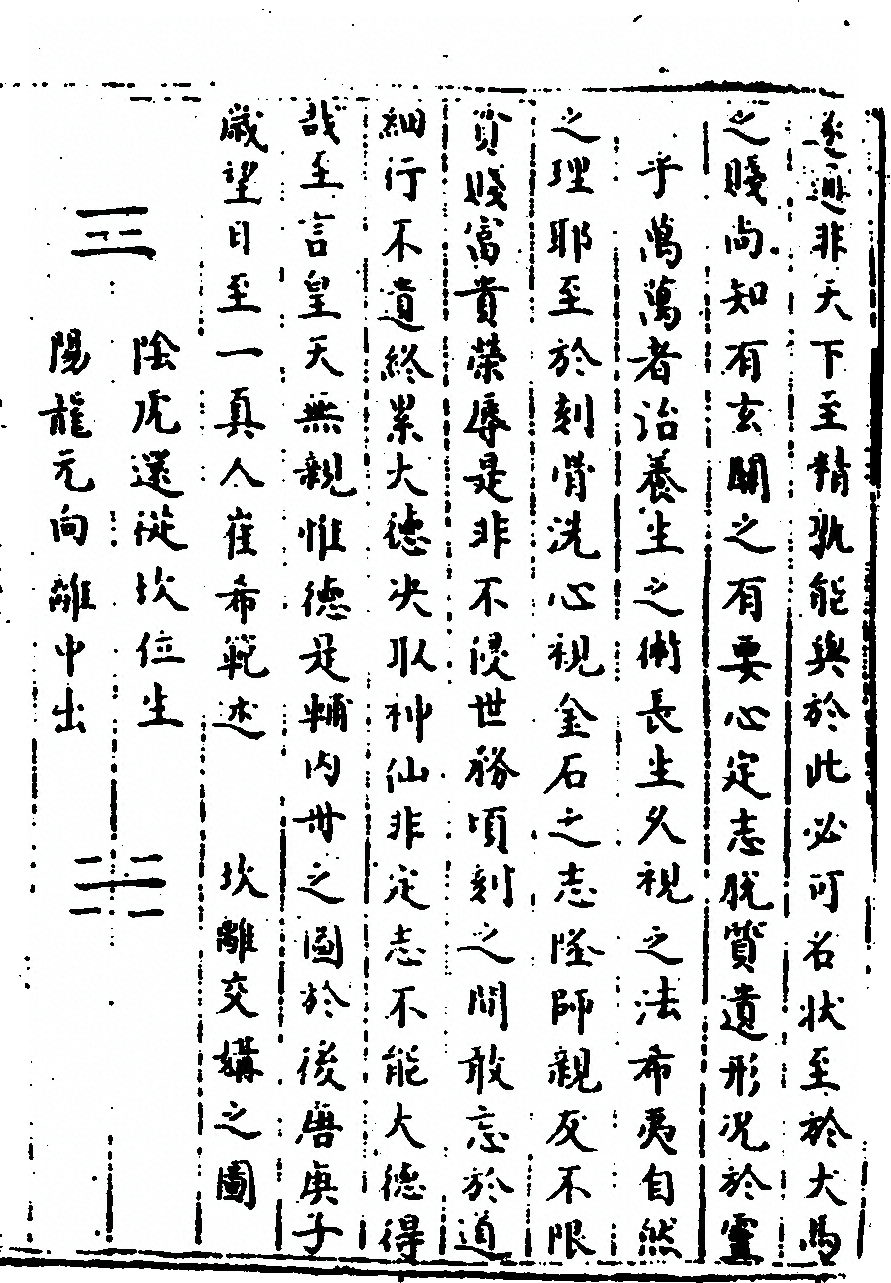 遂通非天下至精孰能與於此必可名狀至於犬馬
之賤尚知有玄關之有要心定志脫質遺形况於靈
乎萬萬者治養生之術長生久視之法希夷自然
之理耶至於刻骨洗心視金石之志隆師親友不限
貧賤富貴榮辱是非不侵世務頃刻之間敢忘於道
細行不遺終累大德决取神仙非定志不能大德得
哉至言皇天無親惟德是輔内丹之圖於後唐庚子
歲望日至一真人崔希範述 坎離交媾之圖
陰虎還從坎位生
陽龍元向離中出